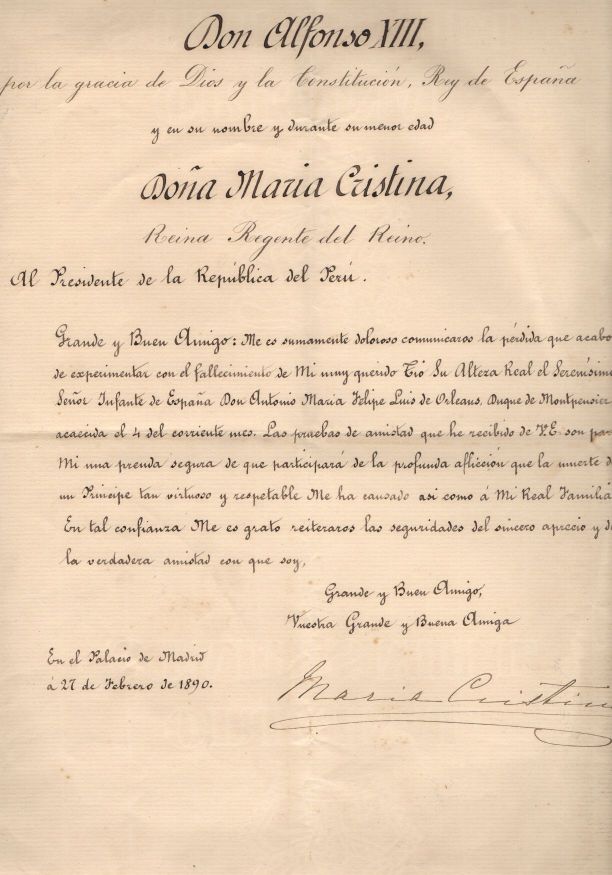 Don Alfonso XIII,
por la gracia de Dios y la Constitución, Rey de España
y en su nombre y durante su menor edad
Doña Maria Cristina,
Reina Regente del Reino.
Al Presidente de la República del Perú.
Grande y Buen Amigo: Me es sumamente doloroso comunicaros la pérdida que acabo
de experimentar con el fallecimiento de Mi muy querido Tió Su Alteza Real el Serenísimo
Señor Infante de España Don Antonio Maria Felipe Luis de Orleans, Duque de Montpensier
acaecida el 4 del corriente mes. Las pruebas de amistad que he recibido de V.E. son pa
Mi una prenda segura de que participará de la profunda aflicción que la muerte d
un Principe tan virtuoso y respetable Me ha causado asi como á Mi Real Familia
En tal confianza Me es grato reiteraros las seguridades del sincero aprecio y d
la verdadera amistad con que soy,
Grande y Buen Amigo,
Vuestra Grande y Buena Amiga
En el Palacio de Madrid
á 27 de Febrero de 1890.
Maria Cristin